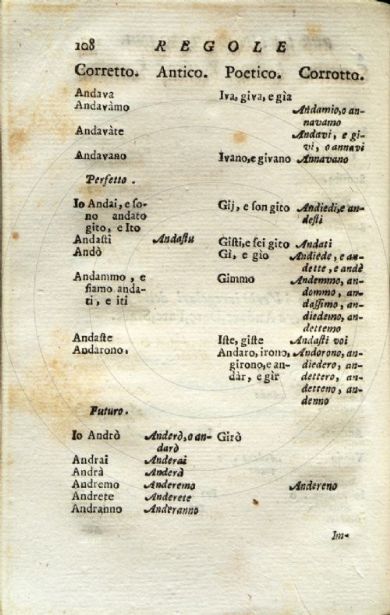 108 REGOLE
Corretto. Antico. Poetico. Corrotto.
Andava Iva, giva, e gìa
Andavàmo Andamio, o an-
navamo
Andavàte Andavi, e gi-
vi, o annavi
Andavano Ivano, e givano Annavano
Perfetto.
Io Andai, e so- Gij, e son gito Andiedi, e an-
no andato desti
gito, e Ito
Andasti Andastu Gisti, e sei gito Andati
Andò Gi, e gìo Andiede, e an-
dette, e andè
Andammo, e Gimmo Andemmo, an-
siamo anda- dommo, an-
ti, e iti dassimo, an-
diedemo, an-
dettemo
Andaste Iste, giste Andasti voi
Andarono. Andaro, irono, Andorono, an-
girono, e an- diedero, an-
dàr, e gìr dettero, an-
detteno, an-
denno
Futuro.
Io Andrò Anderò, o an- Girò
darò
Andrai Anderai
Andrà Anderà
Andremo Anderemo Andereno
Andrete Anderete
Andranno Anderanno
Im-